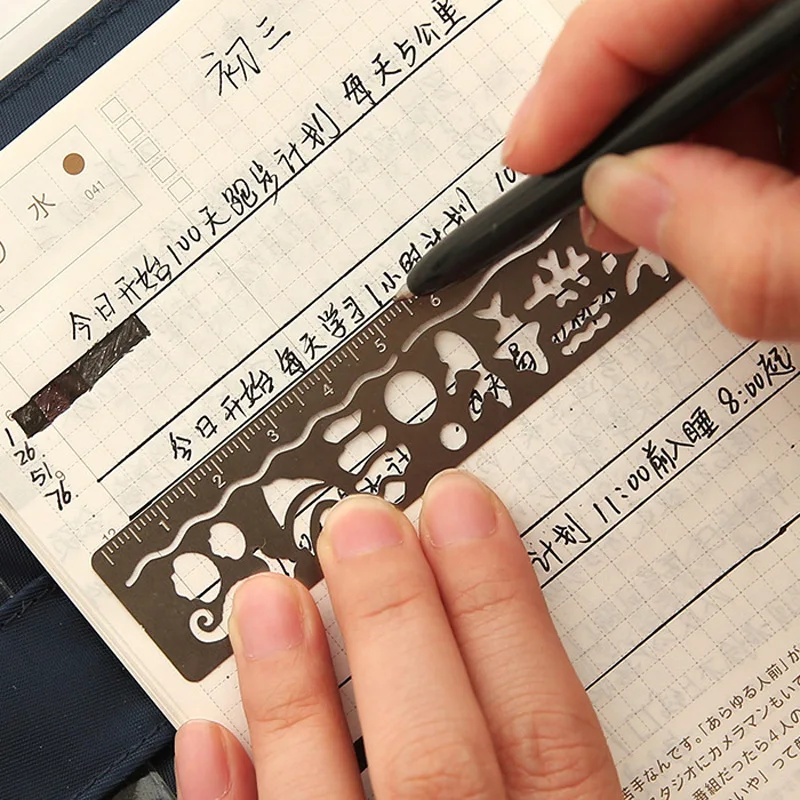 初三
水
041
今日开始100天跑步计划 每天5公里
今日开始每天学习1小时计划 10
1
26.
51.
76.
1 2 3 4 5 6
计划 11:00前入睡 8:00起
苦手なんです。「あらゆる人前」が
タジオにカメラマンもいて
番組だったら4人の
いや」って